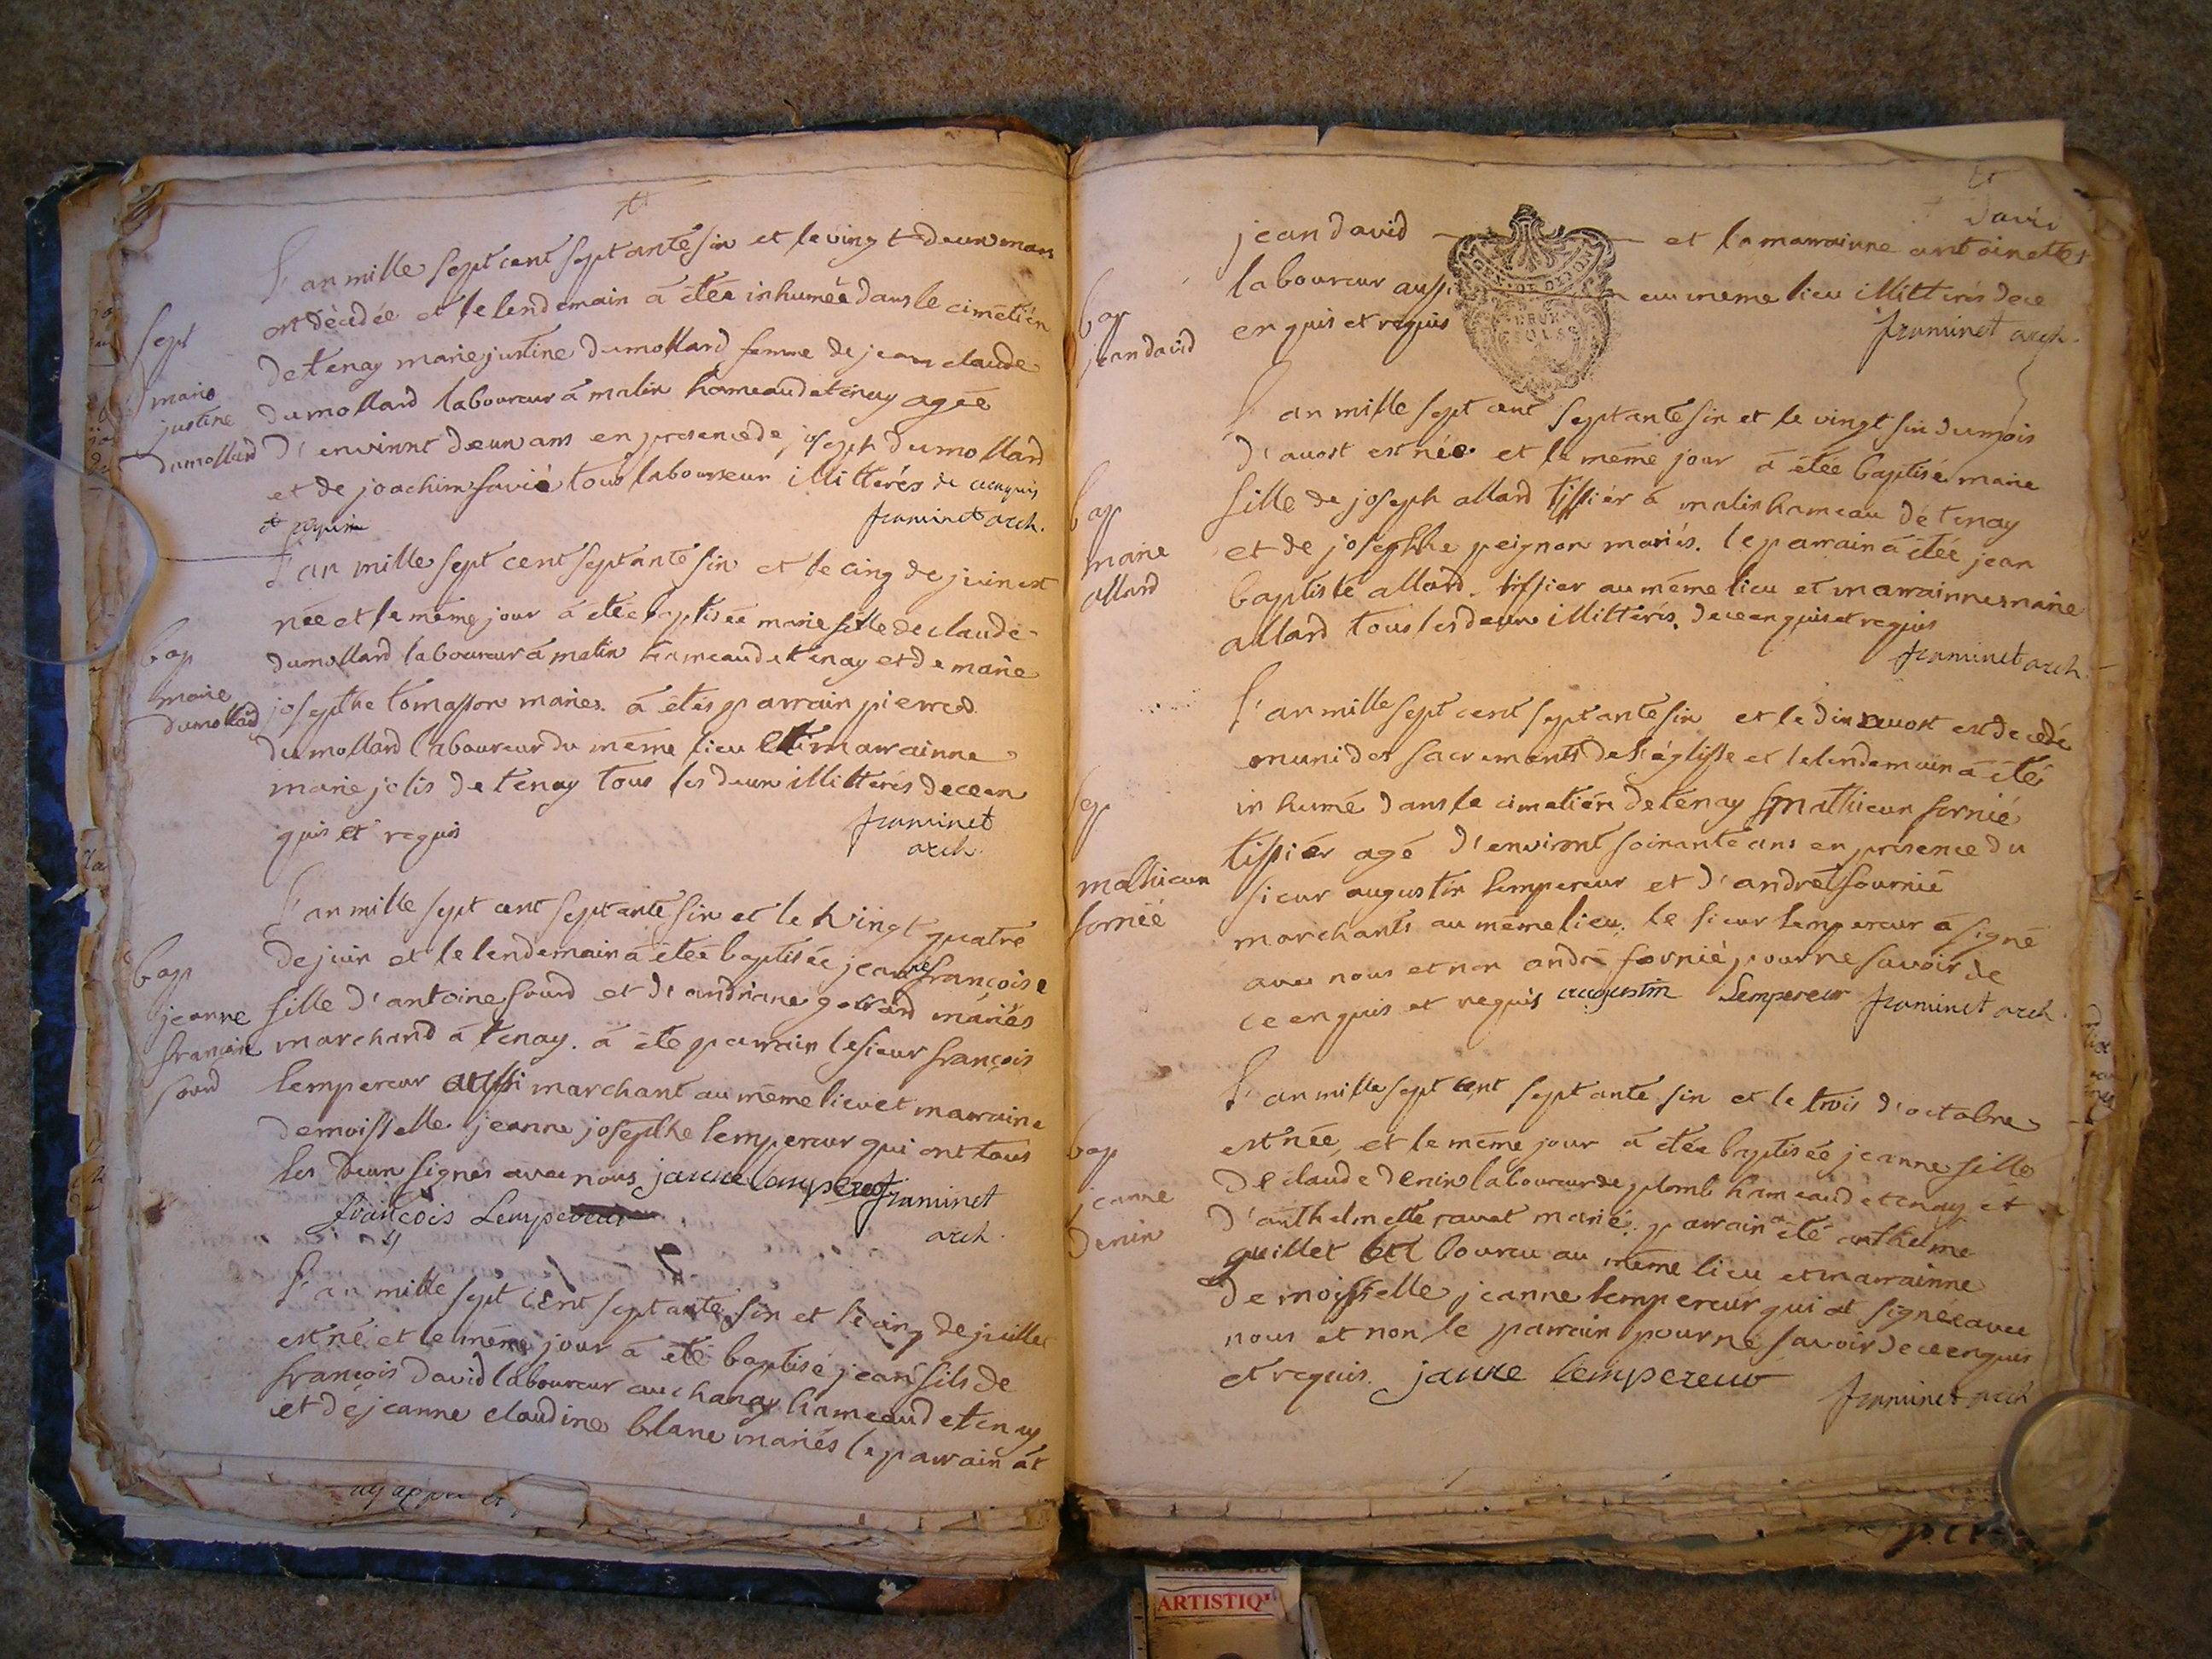 L'an mille sept cent septante six et le vingt deux mars
est décédée et le lendemain à étée inhumée dans le cimetier
de tenay marie justine dumollard femme de jean claude
dumollard laboureur à malix hameau de tenay agée
d'environt deux ans en presence de joseph dumollard
et de joachim savié tous laboureur illitterés de ce enquis
et requis
framinet arch.
sept
marie
justine
dumollard
L'an mille sept cent septante six et le cinq de juin est
née et le même jour à étée baptisée marie fille de claude
dumollard laboureur à malix hameau de tenay et de marie
josephte tomasson mariés. à étés parrain pierre
dumollard laboureur du même lieu et marrainne
marie jolis de tenay tous les deux illitterés de ce en
quis et requis
framinet
arch.
bap
marie
dumollard
L'an mille sept cent septante six et le vingt quatre
de juin et le lendemain à étée baptisée jeanne françoise
fille d'antoine sourd et d'andriane goward mariés
marchand à tenay. à été parrain le sieur françois
lempereur aussi marchant au même lieu et marraine
demoisselle jeanne josephte lempereur qui ont tous
les deux signés avec nous janne lempereur framinet
françois Lempereur
arch.
bap
jeanne
francoise
sourd
L'an mille sept cent septante six et le cinq de juillet
est né et le même jour à été baptisé jean fils de
françois david laboureur au chanay hameau de tenay
et de jeanne claudine blanc mariés le parrain à et
david
jean david et la marrainne antoinette
laboureur aussi au meme lieu illitterés de ce
enquis et requis
framinet arch.
bap
jean david
L'an mille sept cent septante six et le vingt six du mois
d'auost est née et le même jour à étée baptisé marie
fille de joseph allard tissier à malix hameau de tenay
et de josephte peignon mariés. le parrain à étée jean
baptiste allard. tissier au même lieu et marrainne marie
allard tous les deux illitterés. de ce enquis et requis
framinet arch.
bap
marie
allard
L'an mille sept cent septante six et le dix auost est decedé
muni des sacrements de l'églisse et le lendemain à étés
inhumé dans le cimetiére de tenay mathieux fornié
tissier agé d'environt soixante ans en presence du
sieur augustin lempereur et d'andret fournié
marchants au même lieu. le sieur lempereur à signé
avec nous et non andré fornié pour ne savoir de
ce enquis et requis augustin Lempereur framinet arch.
sep
mathieux
fornié
L'an mille sept cent septante six et le trois d'octobre
est née, et le même jour à étée baptisée jeanne fille
de claude denin laboureur de plomb hameau de tenay et
d'anthelmette ravat marié. parrain à été anthelme
guillet laboureu au même lieu et marrainne
demoisselle jeanne lempereur qui at signée avec
nous et non le parrain pour ne savoir de ce enquis
et requis. janne lempereur
framinet arch
bap
jeanne
denin
ARTISTIQU